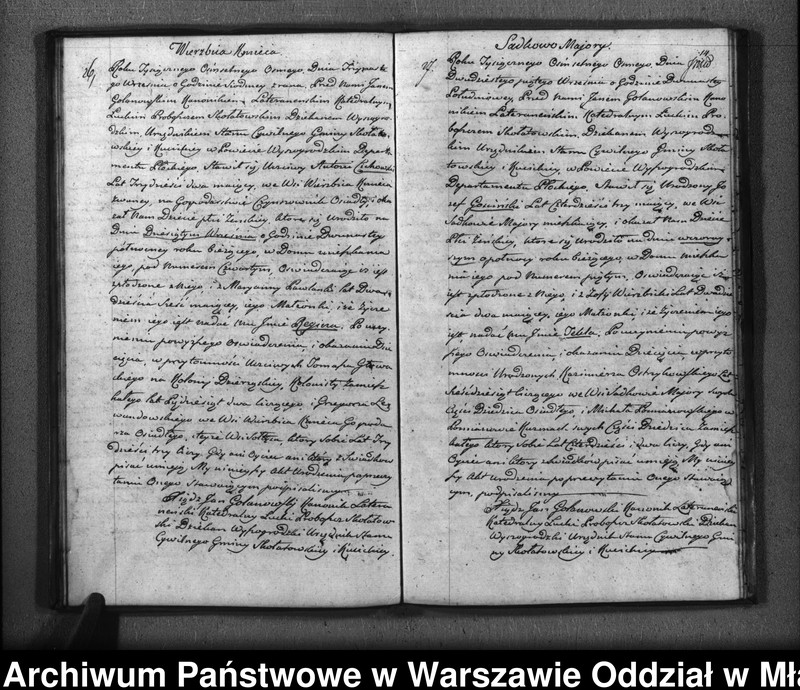 Wierzbica Kmieca
26,
Roku Tysiącznego Osmsetnego Osmego, Dnia Trzynaste
go Września o Godzinie Siodmey z rana, Przed Nami Janem
Golanowskim Kanonikiem Lateranenskim Katedralnym
Luckim Proboszczem Skołatowskim Dziekanem Wyszogro
dzkim, Urzędnikiem Stanu Cywilnego Gminy Skołato
wskiey i Kucickiey w Powiecie Wyszogrodzkim Departa
mentu Płockiego, Stawił się Uczciwy Antoni
Lat Trzydzieści dwa maiący, we Wsi Wierzbica Kmieca
zwaney, na Gospodarstwie Czynszownik Osiadły, i oka
zał Nam Dziecie płci Zenskiey, ktore się Urodziło na
Dniu Dziesiątym Września o Godzinie Dwunastey
połnocney roku bieżącego, w Domu mieszkania
iego pod Numerem Czwartym, Oswiadczaiąc iż iest
spłodzone z Niego, i z Maryanny Pawlanki lat Dwa
dzieścia Sześć maiącey, iego Małżonki, i że życze
niem iego iest nadać Mu Imie Regina. Po uczy
nieniu powyższego Oswiadczenia, i okazaniu Dzi
ecięcia, w przytomności Uczciwych Tomasza
ckiego na Kolonii Kolonisty Zamiesz
kałego lat Pięćdziesiąt dwa liczącego, i Grzegorza
wandowskiego we Wsi Wierzbica Kmieca Gospoda
rza Osiadłego, i teyże Wsi Sołtysa, ktory Sobie Lat Trzy
dzieści trzy liczy, Gdy ani Oyciec ani ktory z Swiadkow
pisać umieią, My ninieyszy Akt Urodzenia po przeczy
taniu Onego Stawaiącym podpisaliśmy
Xiądz Jan Golanowski Kanonik Latera
neński Katedralny Lucki Proboszcz Skołatow
ski Dziekan Wyszogrodzki Urzędnik Stanu
Cywilnego Gminy Skołatowskiey i Kucickiey.
Sadkowo Majory.
14
27.
Roku Tysiącznego Osmsetnego Osmego, Dnia
Dwudziestego piątego Września o Godzinie Dwunastey
Południowey, Przed Nami Janem Golanowskim Kano
nikiem Lateranenskim Katedralnym Luckim Pro
boszczem Skołatowskim, Dziekanem Wyszogrodz
kim Urzędnikiem Stanu Cywilnego Gminy Skoła
towskiey i Kucickiey w Powiecie Wyszogrodzkim
Departamentu Płockiego, Stawił się Urodzony Jo
zef Gosiński Lat Czterdzieści trzy maiący, we Wsi
Sadkowie Majory mieszkaiący, i okazał Nam Dziecie
Płci Zenskiey, ktore się Urodziło na dniu wczoray
szym o połnocy roku bieżącego, w Domu mieszka
nia iego pod Numerem piątym, Oswiadczaiąc iż
iest spłodzone z Niego, i z Zofij Lat Dwadzie
ścia dwa maiącey, iego Małżonki, i że życzeniem iego
iest nadać Mu Imie Tekla. Po uczynieniu powyż
szego Oswiadczenia i okazaniu Dziecięcia w przyto
mności Urodzonych Kazimierza Ostrzykowskiego Lat
Sześćdziesiąt liczącego we Wsi Sadkowie Majory swych
Części Dziedzica Osiadłego, i Michała w
swych Części Dziedzica Zamiesz
kałego ktory Sobie Lat Czterdzieści i Dwa liczy, Gdy ani
Oyciec ani ktory z Swiadkow pisać umieią, My niniey
szy Akt Urodzenia po przeczytaniu Onego Stawaią
cym, podpisaliśmy
Xiądz Jan Golanowski Kanonik Lateraneński
Katedralny Lucki Proboszcz Skołatowski Dziekan
Wyszogrodzki Urzędnik Stanu Cywilnego Gmi
ny Skołatowskiey i Kucickiey
Archiwum Państwowe w Warszawie Oddział w Mła